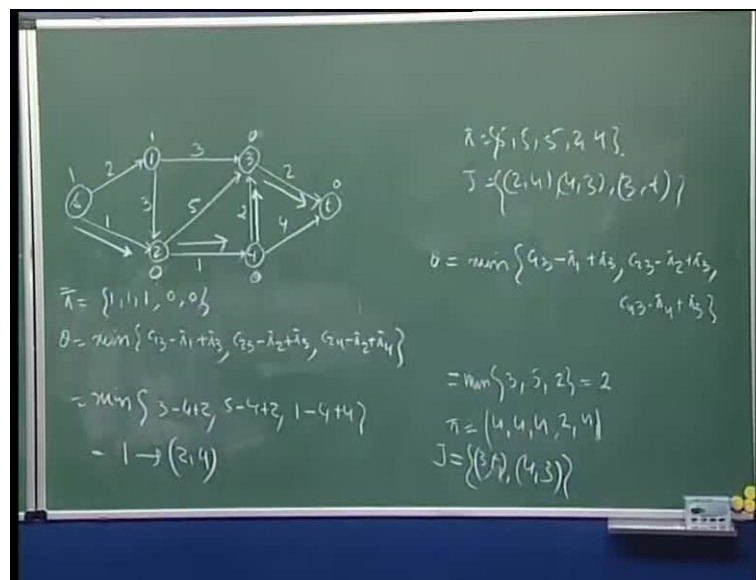 1 0
s 2 1 3 3 2 t 0
1 3 5 2 4
2 1 4
0 0
π̄ = {1,1,1,0,0}
θ = min{c13-π̄1+π̄3, c23-π̄2+π̄3, c24-π̄2+π̄4}
= min{3-4+2, 5-4+2, 1-4+4}
- 1 → (2,4)
5, 5, 2, 4}.
J = {(2,4),(4,3),(3,t)}
θ = min{c13-π̄1+π̄3, c23-π̄2+π̄3,
c43-π̄4+π̄3}
= min{3,5,2} = 2
π = (4,4,4,2,4)
J = {(3,t),(4,3)}